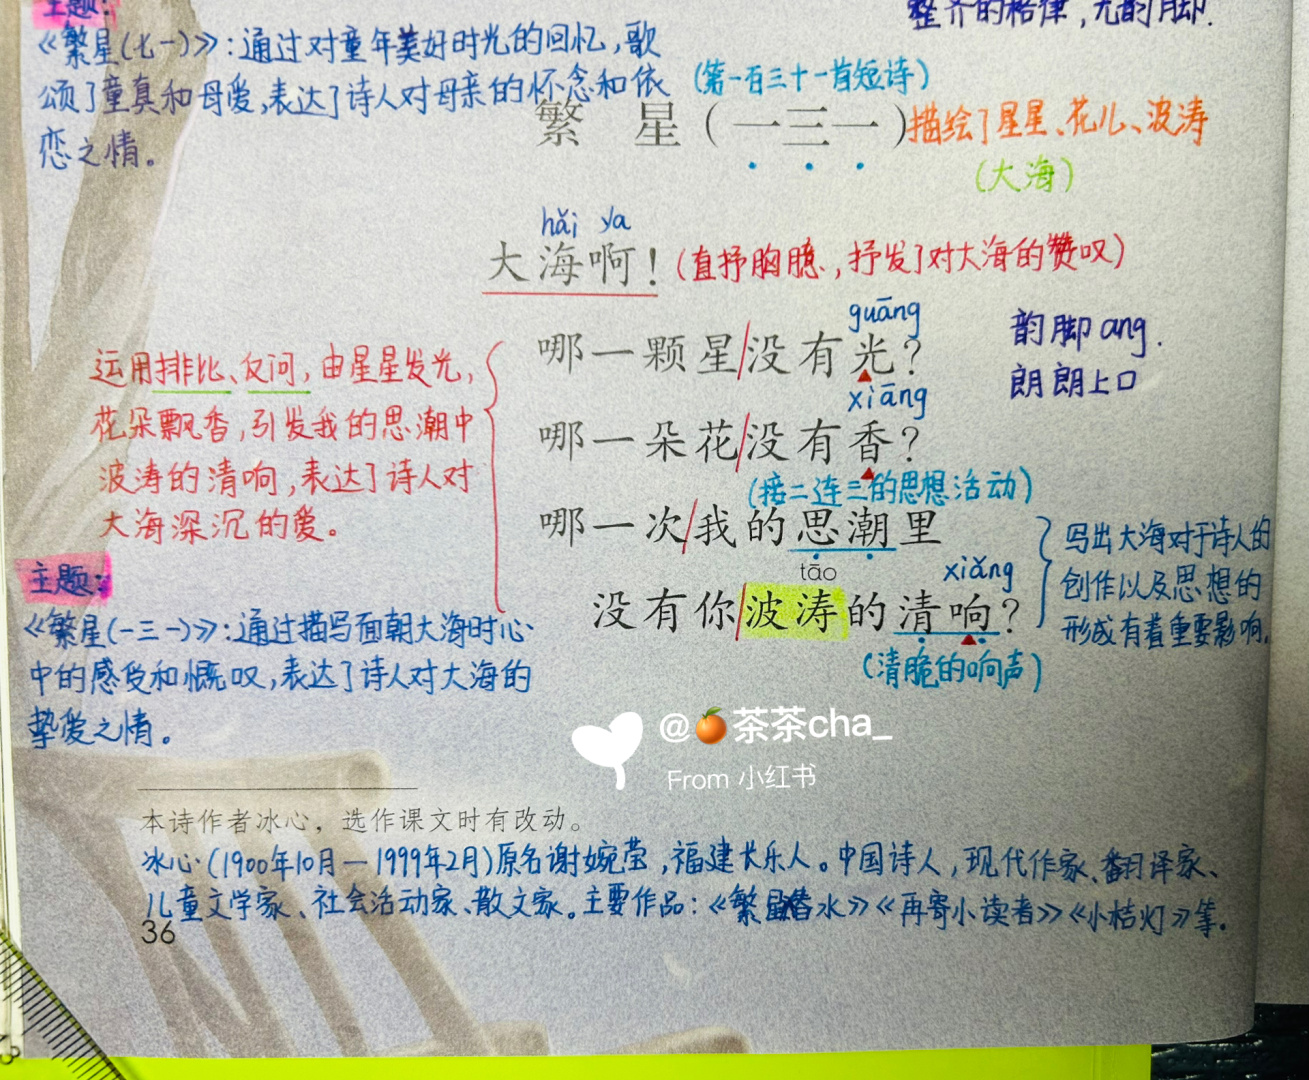 主题:
整齐的格律,无韵脚.
《繁星(七一)》:通过对童年美好时光的回忆,歌
颂了童真和母爱,表达了诗人对母亲的怀念和依
恋之情。
(第一百三十一首短诗)
繁 星(一三一)
描绘了星星、花儿、波涛
(大海)
hǎi ya
大海啊!
(直抒胸臆,抒发了对大海的赞叹)
guāng
哪一颗星没有光?
韵脚 ang.
朗朗上口
xiāng
哪一朵花没有香?
(接二连三的思想活动)
哪一次我的思潮里
tāo
xiǎng
没有你波涛的清响?
(清脆的响声)
运用排比、反问,由星星发光,
花朵飘香,引发我的思潮中
波涛的清响,表达了诗人对
大海深沉的爱。
写出大海对于诗人的
创作以及思想的
形成有着重要影响.
主题:
《繁星(一三一)》:通过描写面朝大海时心
中的感受和慨叹,表达了诗人对大海的
挚爱之情。
@🍊茶茶cha_
From 小红书
本诗作者冰心,选作课文时有改动。
冰心(1900年10月—1999年2月)原名谢婉莹,福建长乐人。中国诗人,现代作家、翻译家、
儿童文学家、社会活动家、散文家。主要作品:《繁星春水》《再寄小读者》《小桔灯》等.
36
13